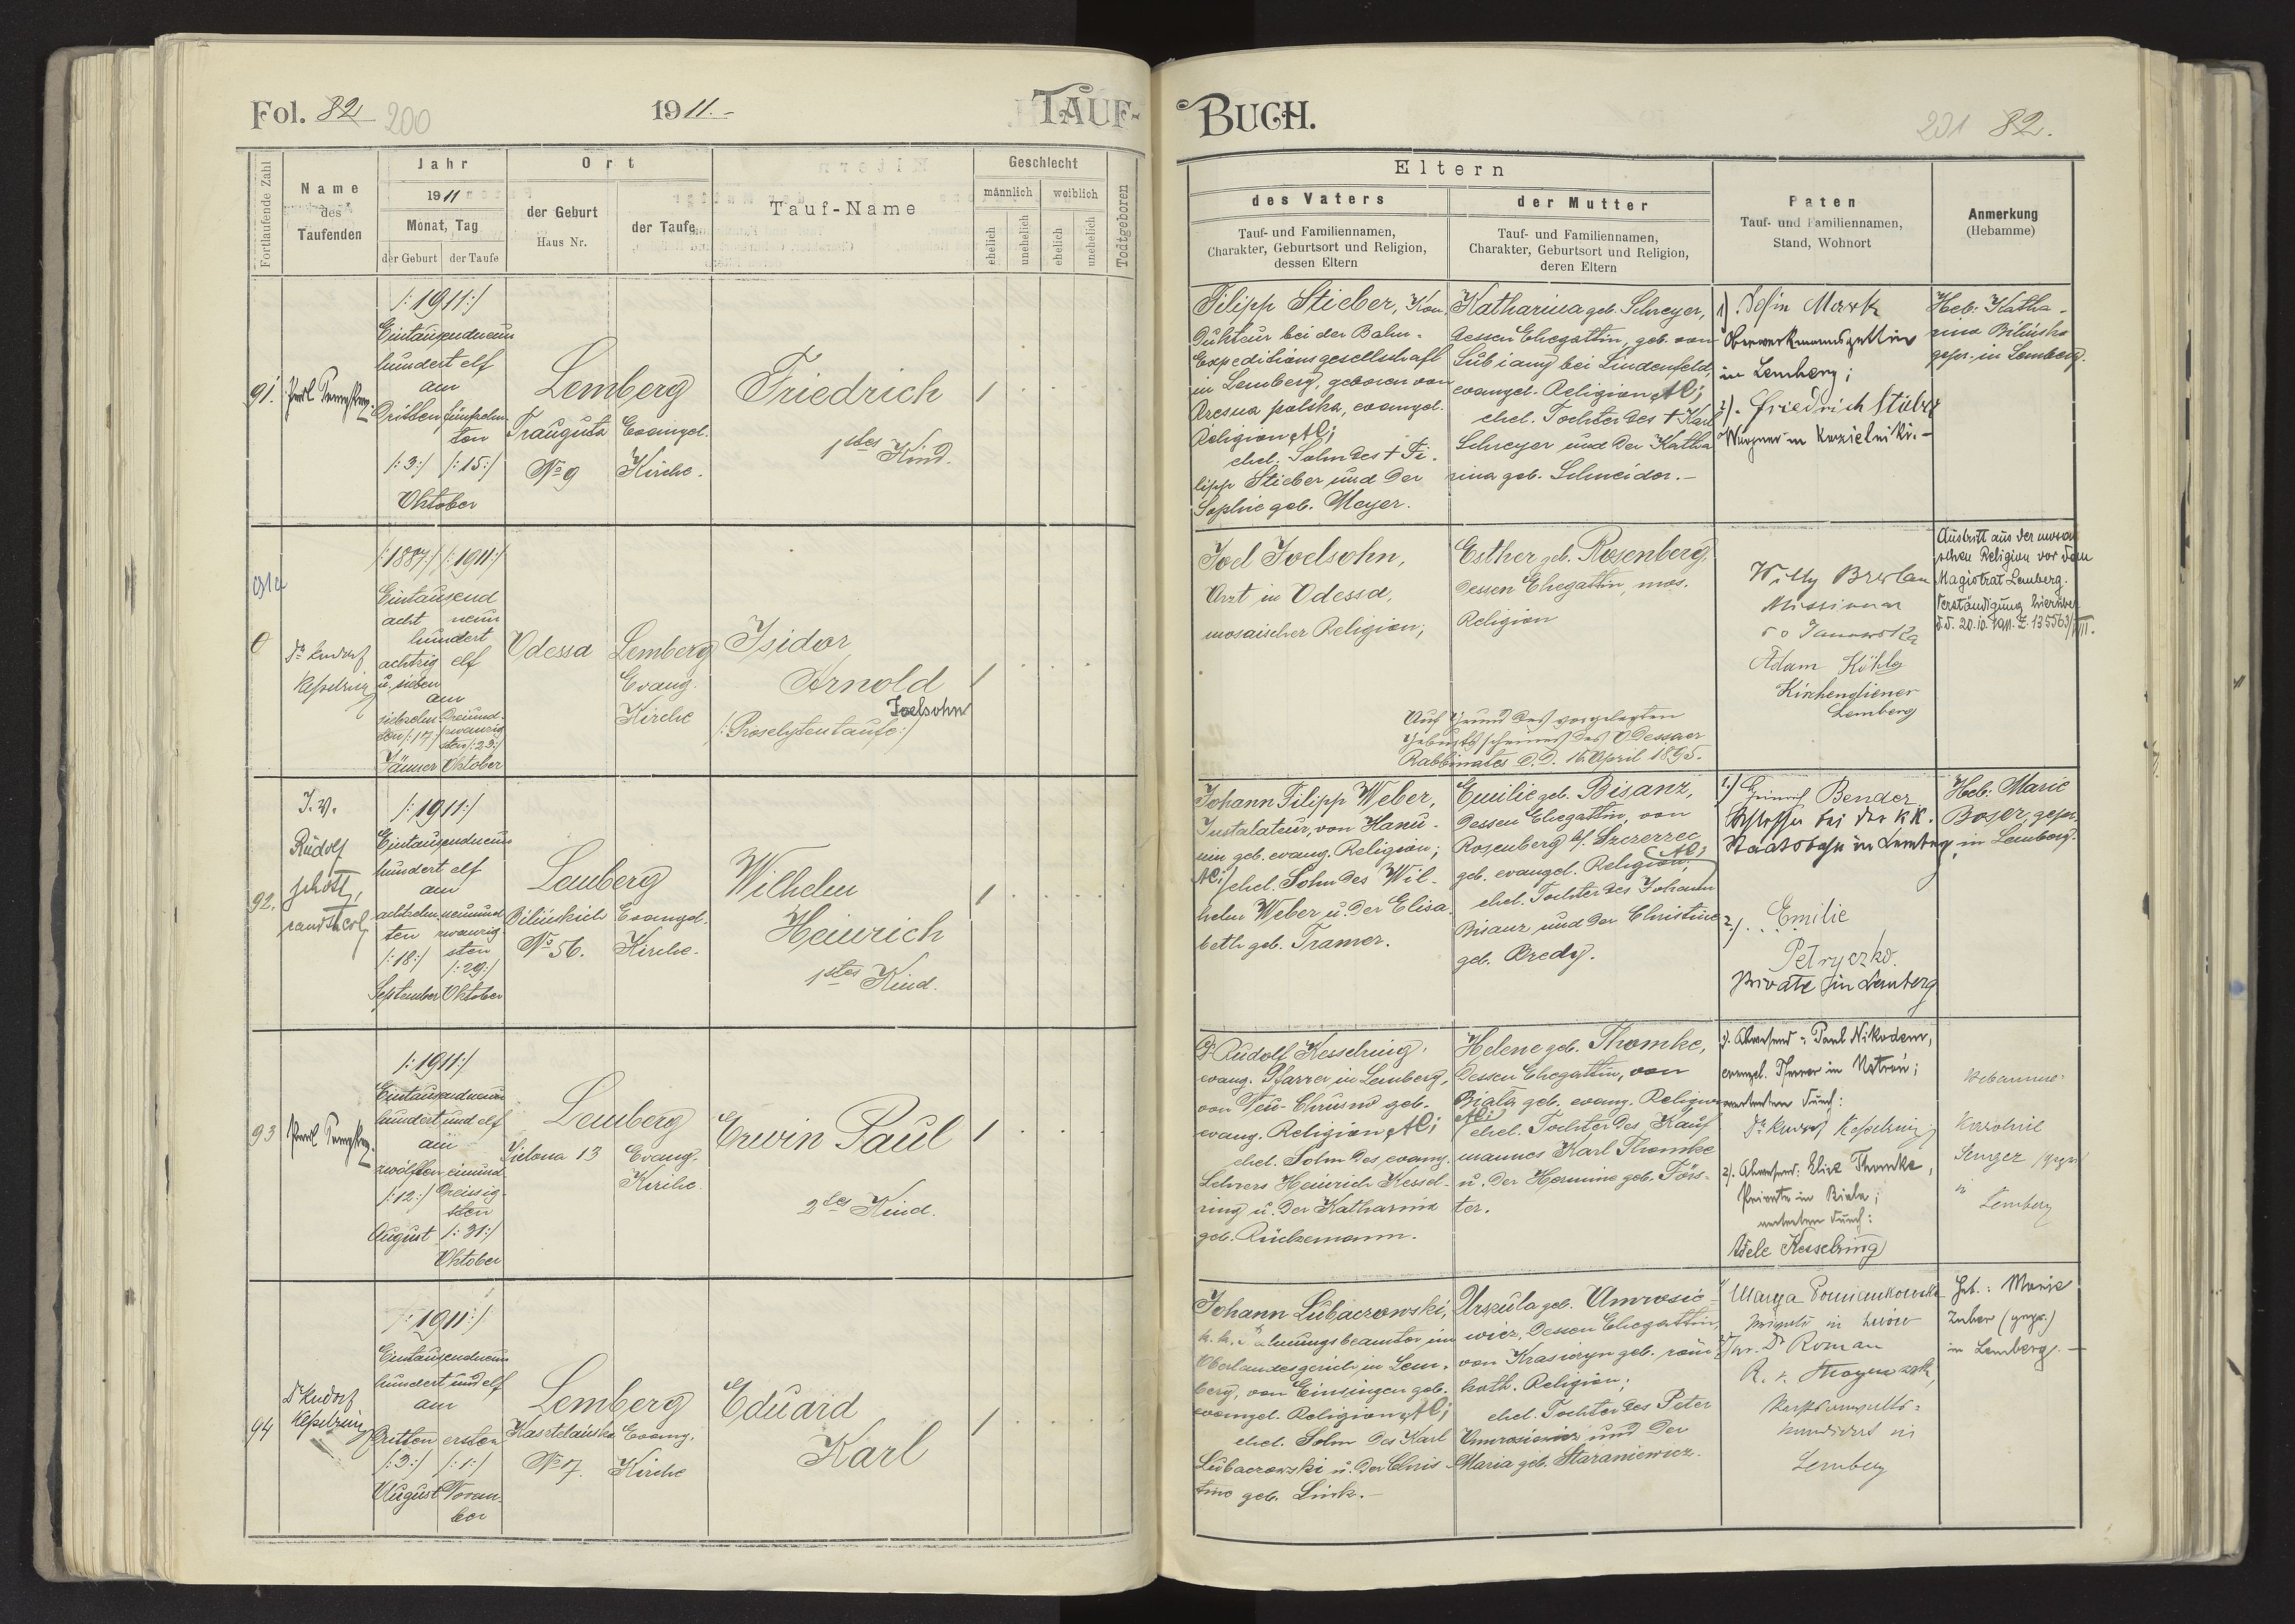 Fol. 82 200
1911.-
TAUF-
BUCH.
201 82.
Fortlaufende Zahl
Name
des
Taufenden
Jahr
1911
Monat, Tag
der Geburt
der Taufe
Ort
der Geburt
Haus Nr.
der Taufe
Tauf-Name
Geschlecht
männlich
weiblich
ehelich
unehelich
ehelich
unehelich
Todtgeboren
Eltern
des Vaters
Tauf- und Familiennamen,
Charakter, Geburtsort und Religion,
dessen Eltern
der Mutter
Tauf- und Familiennamen,
Charakter, Geburtsort und Religion,
deren Eltern
Paten
Tauf- und Familiennamen,
Stand, Wohnort
Anmerkung
(Hebamme)
91.
/: 1911 :/
Eintausendneun
hundert elf
am
Dritten fünfzehn
ten
/: 3 :/ /: 15 :/
Oktober
Lemberg
Trauguta
No 9
Evangel.
Kirche.
Friedrich
1stes Kind.
1
Filipp Stieber, Kon
dukteur bei der Bahn-
Expeditionsgesellschaft
in Lemberg, geboren von
polska, evangel.
Religion AC;
ehel. Sohn des † Fi-
lipp Stieber und der
Sophie geb. Meyer.
Katharina geb. Schreyer,
dessen Ehegattin, geb. von
Lubiany bei Lindenfeld,
evangel. Religion AC;
ehel. Tochter des † Karl
Schreyer und der Katha
rina geb. Schneider.-
1). Mark
in Lemberg;
2). Friedrich
in
Heb: Katha-
rina Bilinska
gepr. in Lemberg.
91a
Dr Rudolf
Kesselring
/:1887:/ /:1911:/
Eintausend
acht neun
hundert
achtzig elf
u. sieben
am
siebzehn Dreiund-
ten /:17:/ zwanzig
sten /:23:/
Jänner Oktober
Odessa
Lemberg
Evang.
Kirche
Isidor
Arnold
Joelsohn
/: Proselytentaufe :/
1
Joel Joelsohn,
Arzt in Odessa,
mosaischer Religion;
Esther geb. Rosenberg,
dessen Ehegattin, mos.
Religion
Auf Grund des vorgelegten
Geburtsscheines des Odessaer
Rabbinates d. d. 16. April 1895.
Willy
Missionar
Janowska
Adam Köhle
Kirchendiener
Lemberg
Austritt aus der mosai
schen Religion vor dem
Magistrat Lemberg.
Verständigung hierüber
d.d. 20.10. 1911. Z: 135563/VIII.
92.
I. V.
Rudolf
Schott,
cand. theol.
/: 1911 :/
Eintausendneun
hundert elf
am
achtzehn neunund
ten zwanzig
/: 18 :/ sten
/: 29 :/
September Oktober
Lemberg
No 56.
Evangel.
Kirche.
Wilhelm
Heinrich
1stes Kind.
1
Johann Filipp Weber,
Instalateur, von Hanu-
nin geb. evang. Religion;
AC; ehel. Sohn des Wil-
helm Weber u. der Elisa
beth geb. Tramer.
Emilie geb. Bisanz,
dessen Ehegattin, von
Rosenberg bf. Szczerzec
geb. evangel. Religion; AC;
ehel. Tochter des Johann
Bisanz und der Christine
geb. Bredy.
1.) Heinrich Bender
Schlosser bei der k.k.
Staatsbahn in Lemberg
2.) Emilie
Petryczko.
Private in Lemberg
Heb: Marie
Boser, gepr.
in Lemberg.
93
/: 1911 :/
Eintausendneun
hundert und elf
am
zwölften einund
/: 12 :/ dreissig-
sten
August /: 31 :/
Oktober
Lemberg
Zielona 13
Evang.
Kirche.
Erwin Paul
2tes Kind.
1
Dr Rudolf Kesselring,
evang. Pfarrer in Lemberg,
von Neu-Chrusno geb.
evang. Religion AC;
ehel. Sohn des evang.
Lehrers Heinrich Kessel-
ring u. der Katharina
geb. Rückemann.
Helene geb. Thomke,
dessen Ehegattin, von
Biala geb. evang. Religion
AC; ehel. Tochter des Kauf
mannes Karl Thomke
u. der Hermine geb. Förs-
ter.
1). Abwesend: Paul Nikodem,
evangel. Pfarrer in Ustroń;
vertreten durch:
Dr Rudolf Kesselring;
2). Abwesend: Elise Thomke,
Private in Biala;
vertreten durch:
Adele Kesselring
Hebamme:
Karoline
Senger
in
Lemberg
94
Dr Rudolf
Kesselring
/: 1911 :/
Eintausendneun
hundert und elf
am
Dritten ersten
/: 3 :/ /: 1 :/
August Novem-
ber
Lemberg
Kasztelańska
No 7.
Evang.
Kirche
Eduard
Karl
1
Johann Lubaczowski,
k. k. Rechnungsbeamter im
Oberlandesgericht in Lem-
berg, von Einsingen geb.
evangel. Religion AC;
ehel. Sohn des Karl
Lubaczowski u. der Chris-
tine geb. Link.-
Urszula geb. Amrosie-
wicz, dessen Ehegattin,
von Krasuczyn geb. röm.
kath. Religion;
ehel. Tochter des Peter
Amrosiewicz und der
Maria geb. Staraniewicz.
Marya
in Lwów
Dr Roman
in
Lemberg
Heb.: Marie
Zuber (gepr.)
in Lemberg.-